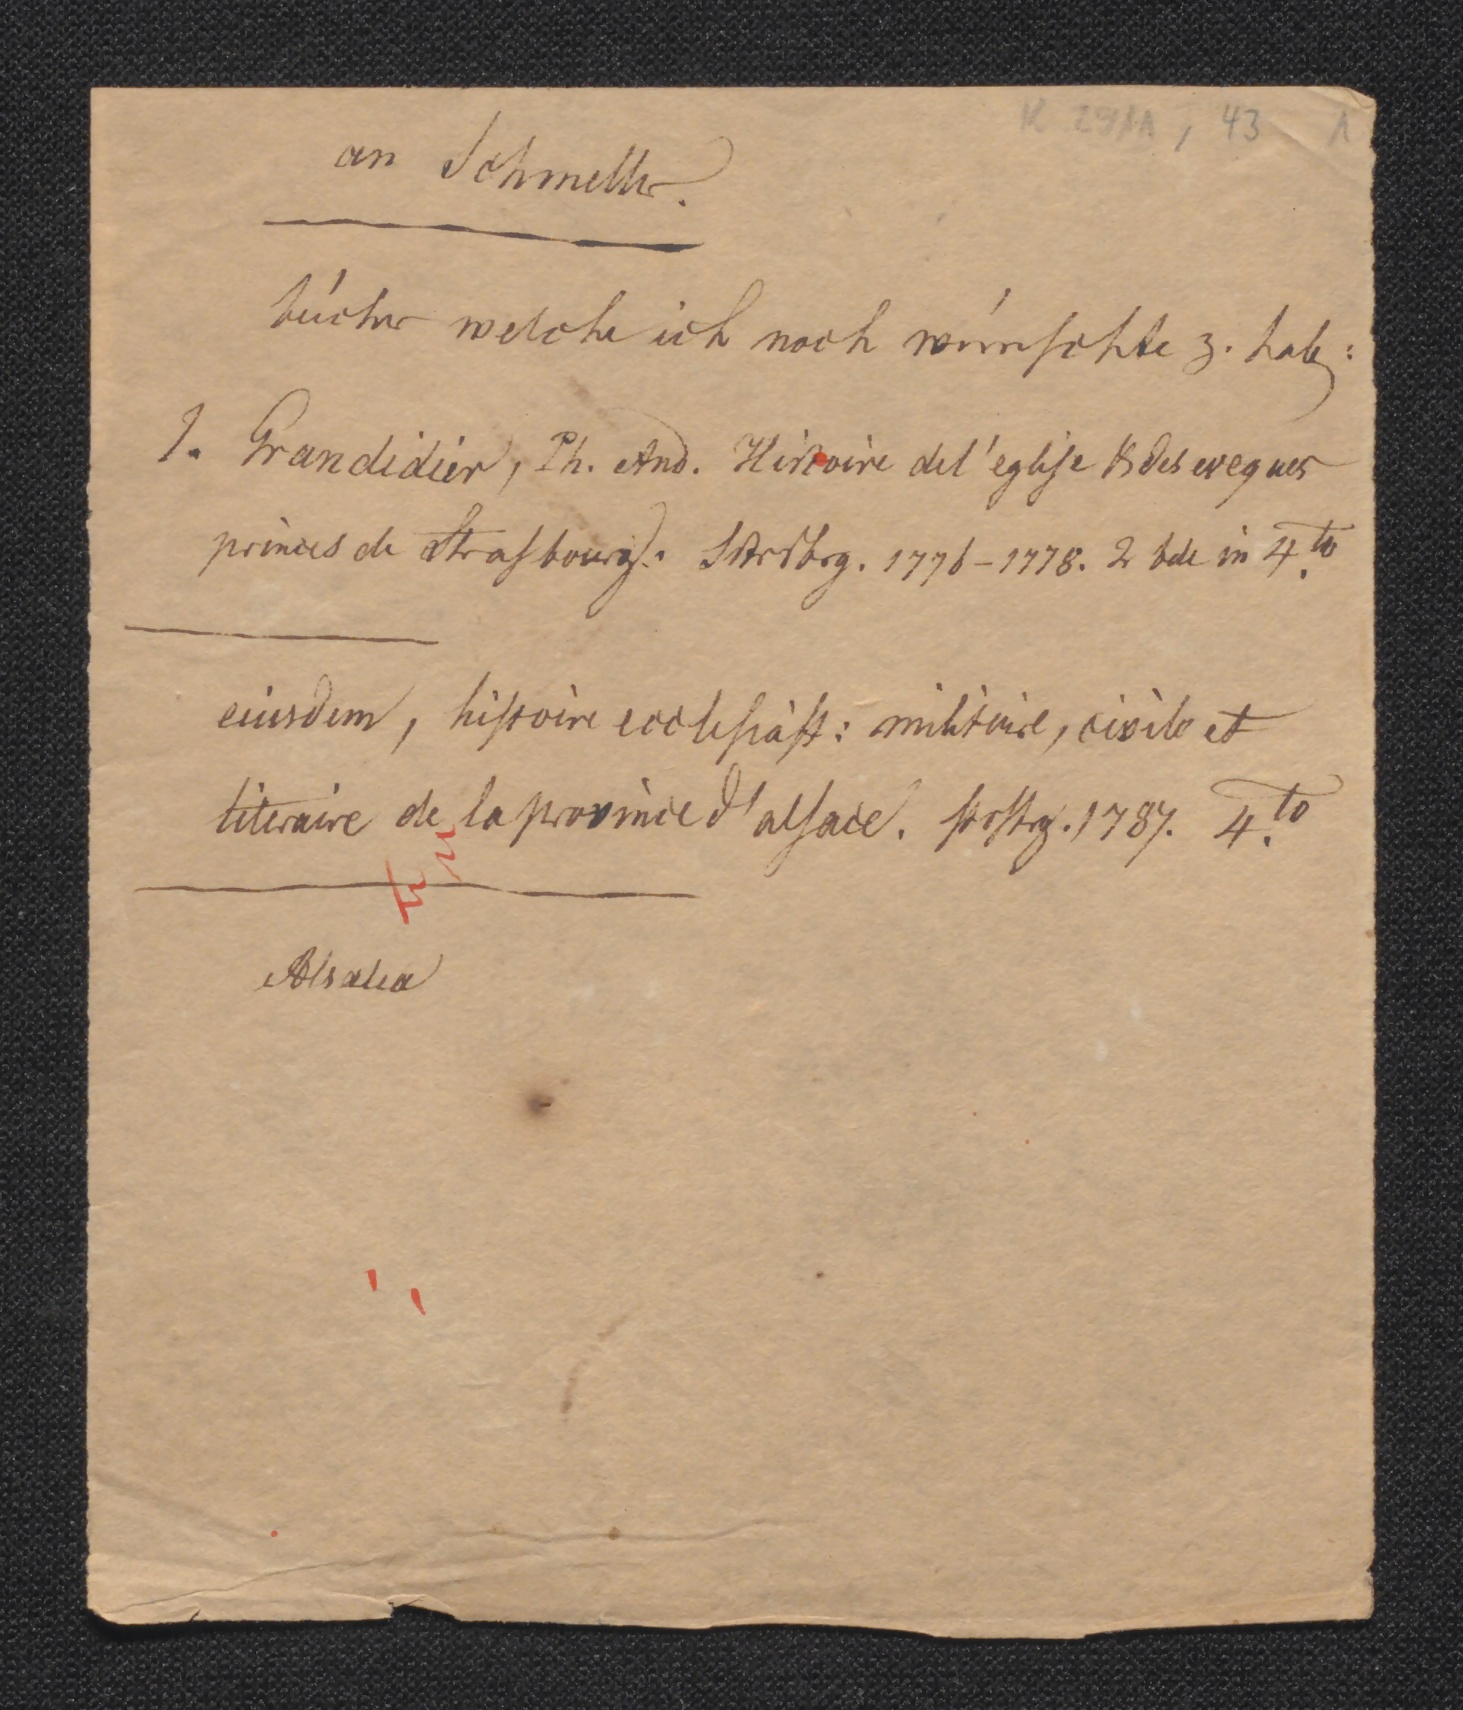 43 1
an Schmeller.
bücher welche ich noch wünschte z. haben:
1. Grandidier, Ph. And. Histoire de l'eglise & des eveques
princes de Strasbourg. Strsbrg. 1776-1778. 2 bde in 4.to
eiusdem, histoire ecclesiast: militaire, civile et
literaire de la province d'alsace. strsbrg. 1787. 4.to
Alsatia